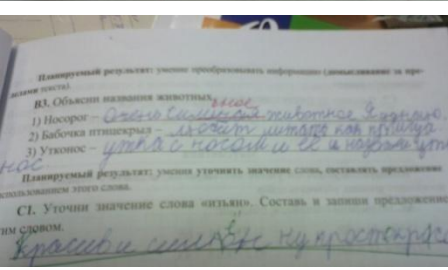 Планируемый результат: умение преобразовывать информацию (домысливание за пре-
делами текста).
В3. Объясни названия животных.
1) Носорог – очень животное
2) Бабочка птицекрыл – любит летать как птица
3) Утконос – утка с носом и её и назвали ут
нос
Планируемый результат: умения уточнять значение слова, составлять предложение
использованием этого слова.
С1. Уточни значение слова «изъян». Составь и запиши предложение
им словом.
Красиво и